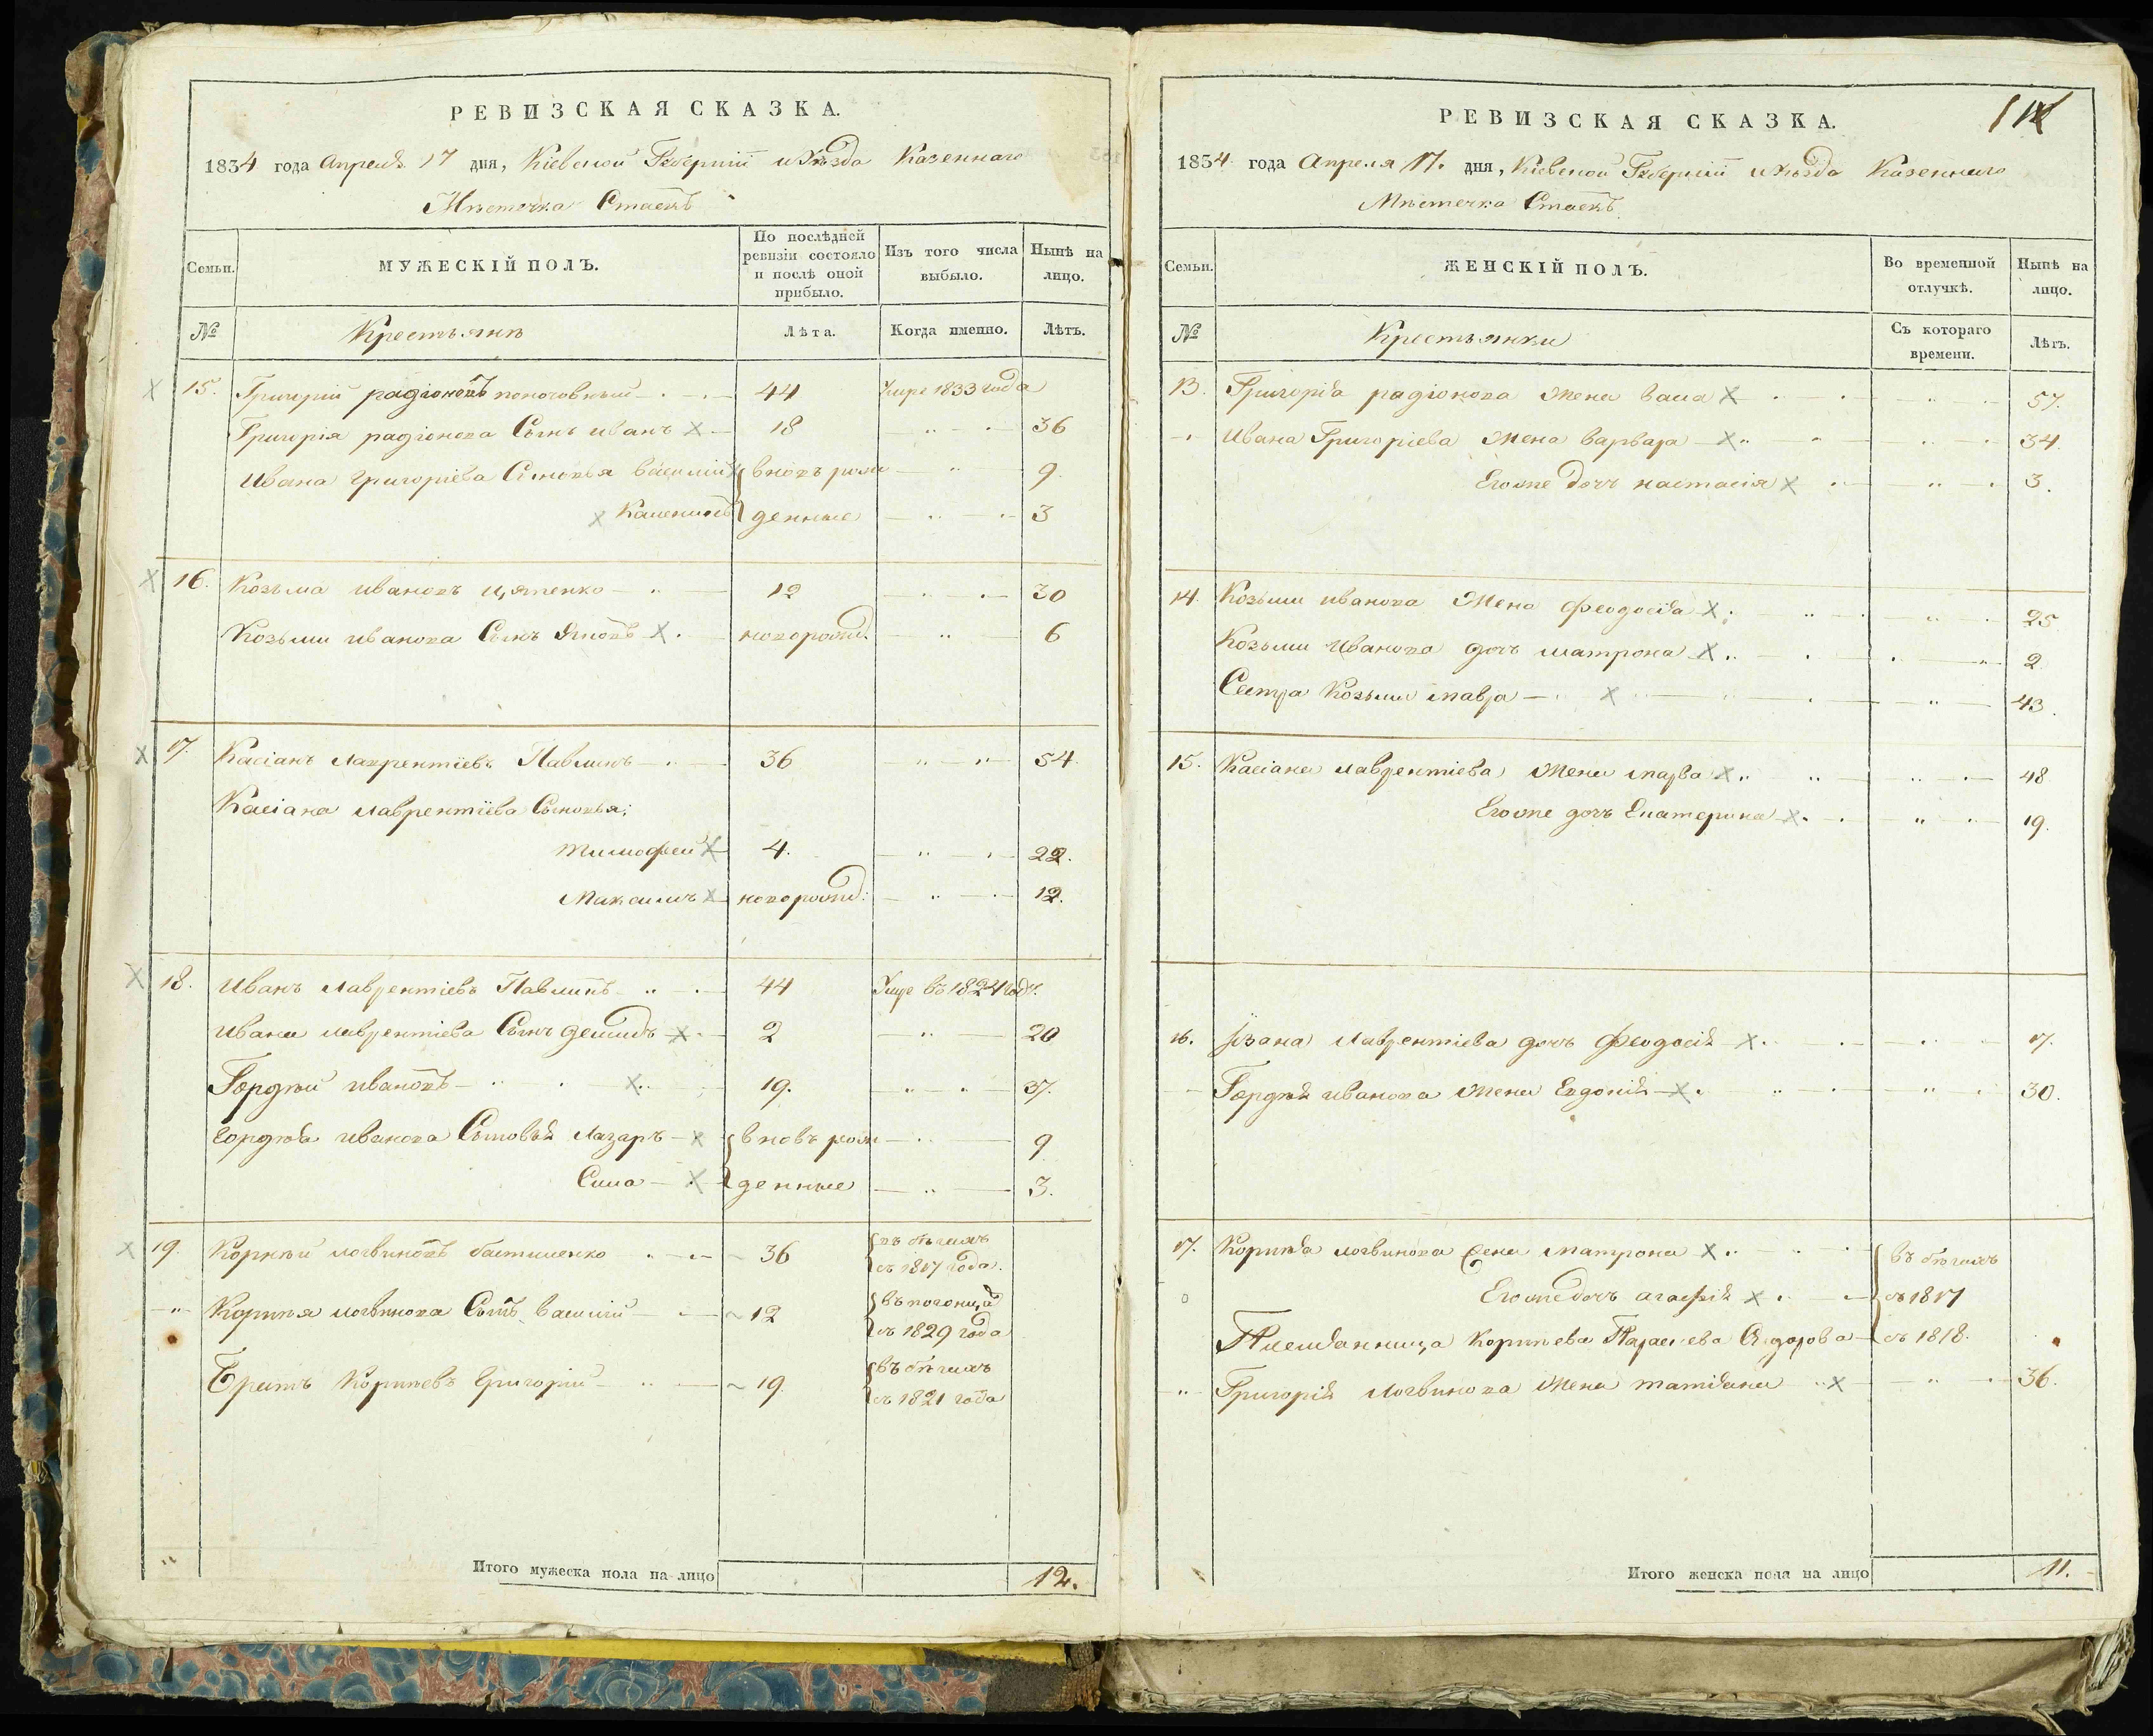 РЕВИЗСКАЯ СКАЗКА.
1834 года Апреля 17 дня, Кіевской Губерніи и Уѣзда Казеннаго
Мѣстечка Стаекъ
Семьи. МУЖЕСКІЙ ПОЛЪ. По послѣдней ревизіи состояло и послѣ оной прибыло. Изъ того числа выбыло. Нынѣ на лицо.
№ Крестьянѣ Лѣта. Когда именно. Лѣтъ.
15. Григорій радіоновъ 44 Умре 1833 года
Григорія радіонова Сынъ иванъ 18 36
Ивана григоріева Сыновья василій вновь рож 9
денные 3
16. Козьма ивановъ 12 30
Козьми иванова Сынъ Яковъ новорожд. 6
17. Касіанъ лаврентіевъ Павликъ 36 54
Касіана лаврентіева Сыновья:
тимофей 4. 22.
Максимъ новорожд: 12.
18. Иванъ лаврентіевъ Павликъ 44 Умре въ 1824 году.
ивана лаврентіева Сынъ демидъ 2 20
Гордѣй ивановъ 19. 37.
Гордѣя иванова Сыновья лазаръ вновь рож 9
Сила денные 3.
19. Корнѣй логвиновъ бастименко 36 въ бѣгахъ
съ 1817 года.
Корнѣя логвинова Сынъ василій 12
съ 1829 года
Братъ Корнѣевъ Григорій 19. въ бѣгахъ
съ 1821 года
Итого мужеска пола на лицо 12.
РЕВИЗСКАЯ СКАЗКА.
1834 года Апреля 17. дня, Кіевской Губерніи и Уѣзда Казеннаго
Мѣстечка Стаекъ
Семьи. ЖЕНСКІЙ ПОЛЪ. Во временной отлучкѣ. Нынѣ на лицо.
№ Крестьянки Съ котораго времени. Лѣтъ.
13. Григорія радіонова жена 57.
Ивана Григоріева жена варвара 34.
Егоже дочъ настасія 3.
14. Козьми иванова жена феодосія 25
Козьми иванова дочъ матрона 2.
Сестра Козьми мавра 43.
15. Касіана лаврентіева жена марва 48
Егоже дочъ Екатерина 19.
16. Ивана лаврентіева дочъ феодосія 17.
Гордѣя иванова жена Евдокія 30.
17. Корнѣя логвинова жена матрона въ бѣгахъ
Егоже дочъ агафія съ 1817
Племянница Корнѣева съ 1818.
Григорія логвинова жена татіана 36.
Итого женска пола на лицо 11.